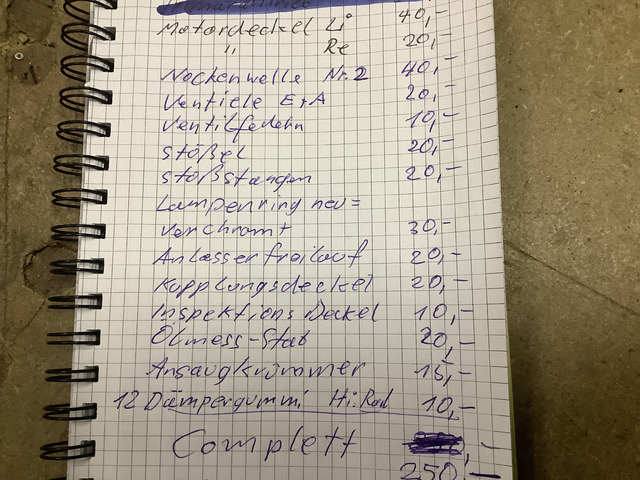 Motordeckel Li 40,-
" Re 20,-
Nockenwelle Nr.2 40,-
Ventiele E+A 20,-
Ventilfedern 10,-
Stößel 20,-
Stoßstangen 20,-
Lampenring neu=
verchromt 30,-
Anlasserfreilauf 20,-
Kupplungsdeckel 20,-
Inspektions Deckel 10,-
Ölmess-Stab 20,-
Ansaugkrümmer 15,-
12 Dämpergummi Hi.Rad 10,-
Complett
250,-